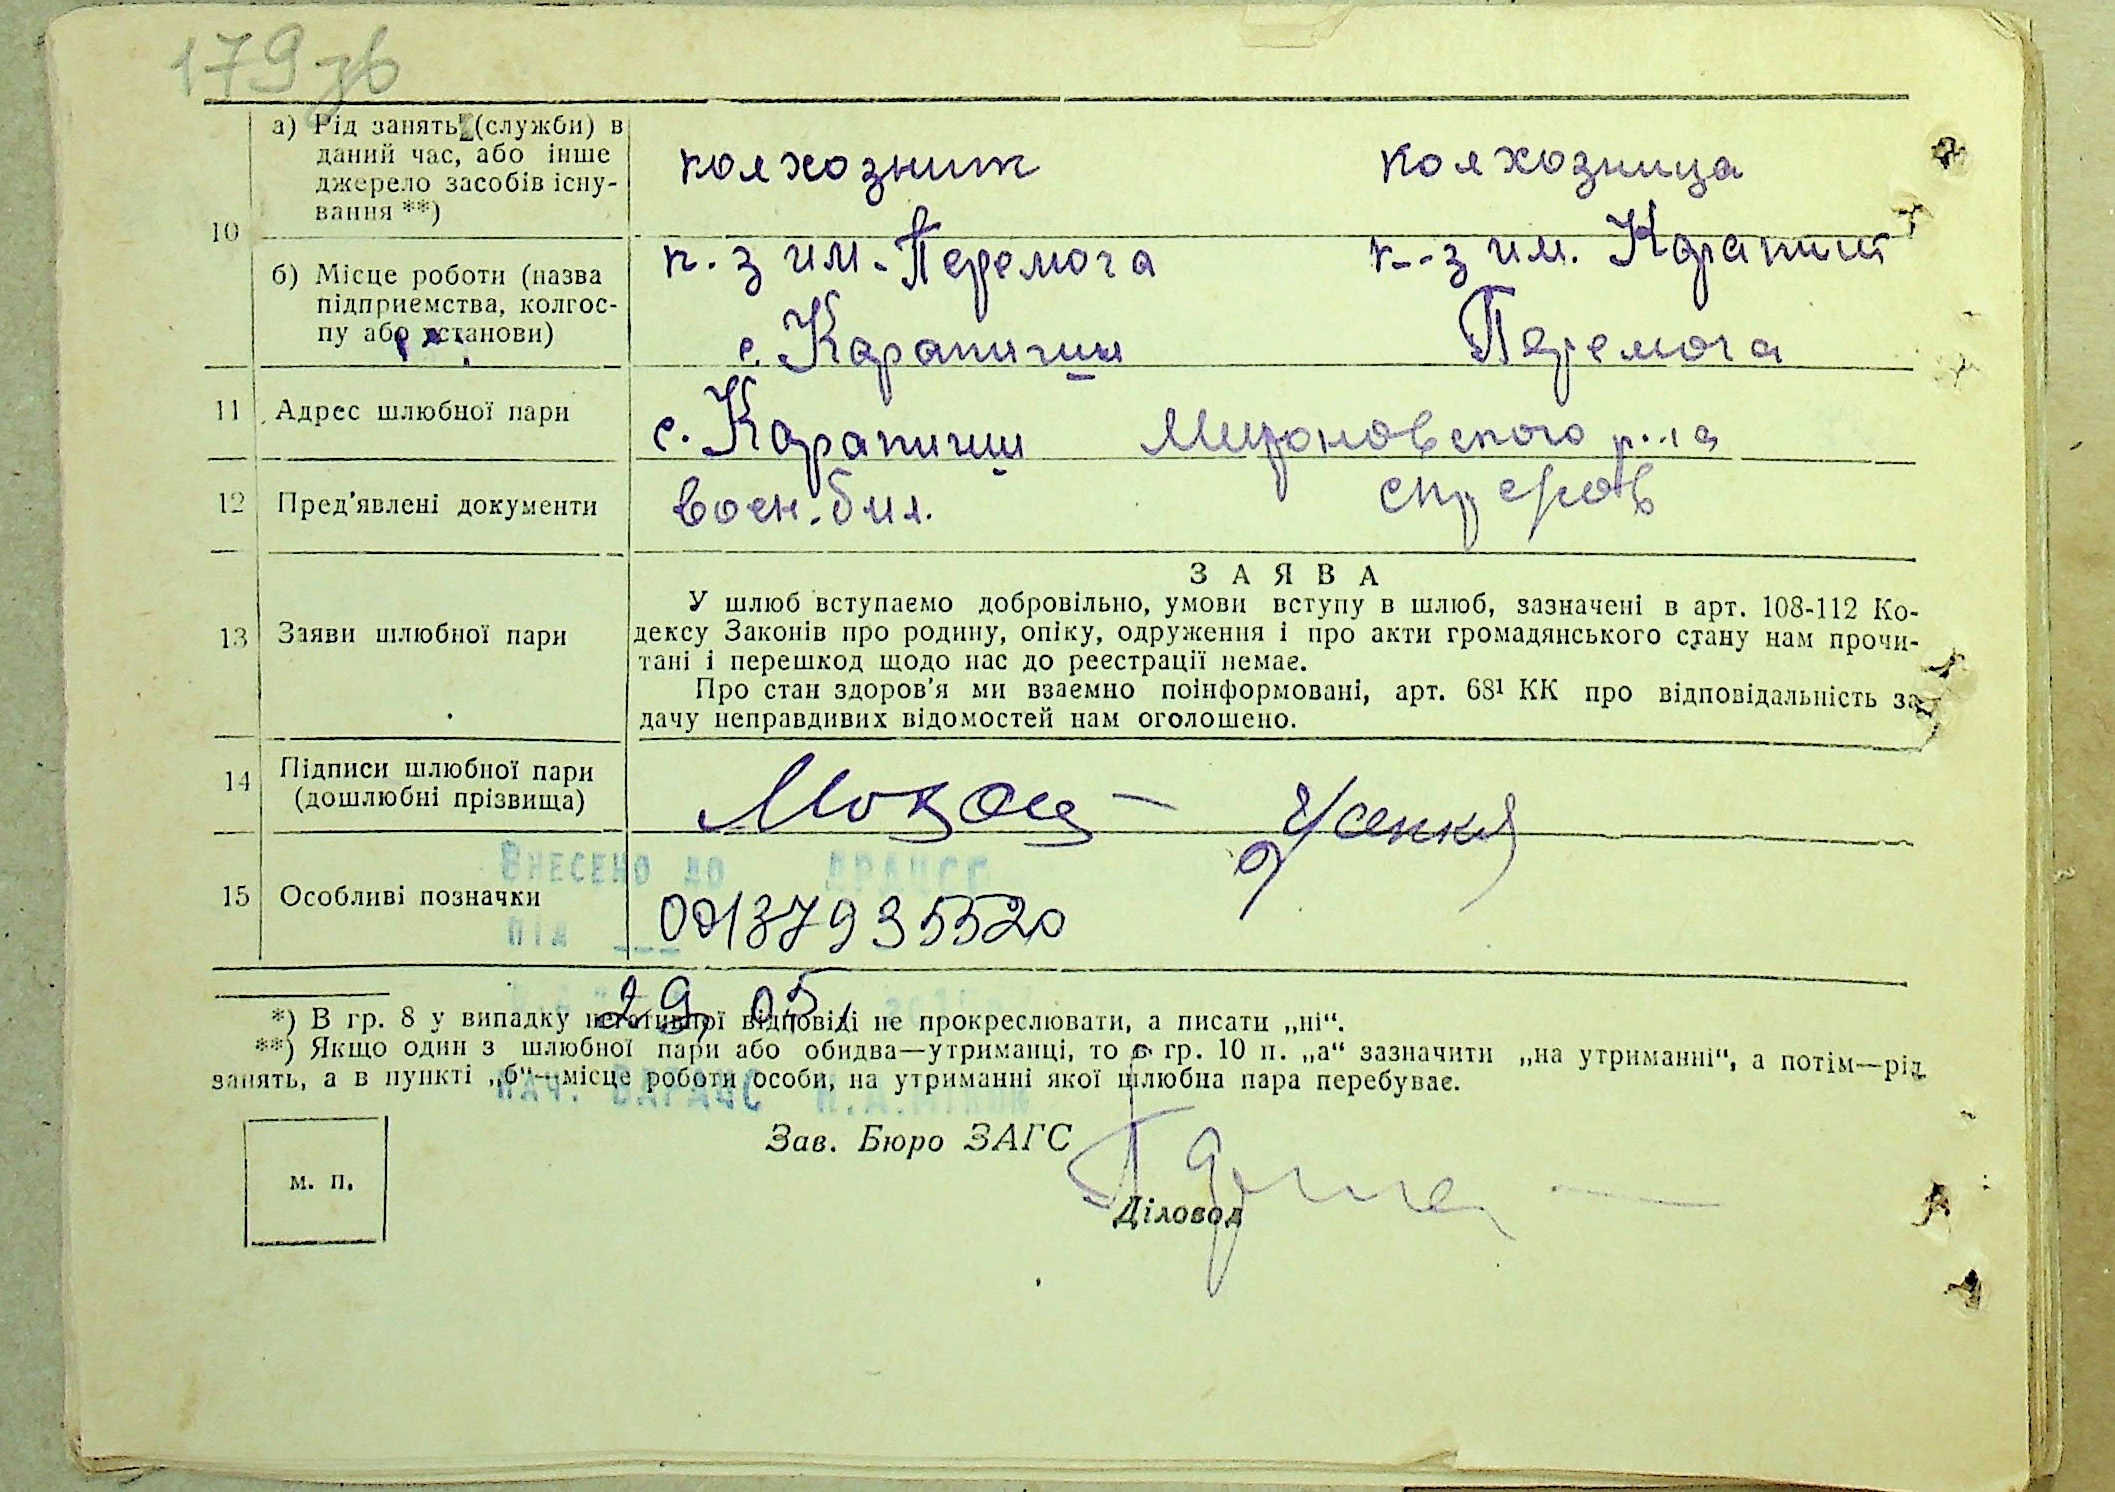 179 зв
а) Рід занять (службИ) в
даний час, або інше
джерело засобів існу-
вання **)
колхозник
колхозница
10
б) Місце роботи (назва
підприємства, колгос-
пу або установи)
к-з им. Перемога
с. Карапиши
к-з им. Карапиш
Перемога
11 Адрес шлюбної пари
с. Карапиши Мироновского р-на
12 Пред'явлені документи
воен. бил.
З А Я В А
13 Заяви шлюбної пари
У шлюб вступаємо добровільно, умови вступу в шлюб, зазначені в арт. 108-112 Ко-
дексу Законів про родину, опіку, одруження і про акти громадянського стану нам прочи-
тані і перешкод щодо нас до реєстрації немає.
Про стан здоров'я ми взаємно поінформовані, арт. 68¹ КК про відповідальність за
дачу неправдивих відомостей нам оголошено.
14 Підписи шлюбної пари
(дошлюбні прізвища)
Внесено до ДРАЦСГ
15 Особливі позначки
00137935520
під
29. 05.
*) В гр. 8 у випадку негативної відповіді не прокреслювати, а писати „ні“.
**) Якщо один з шлюбної пари або обидва—утриманці, то в гр. 10 п. „а“ зазначити „на утриманні“, а потім—рід
занять, а в пункті „б“—місце роботи особи, на утриманні якої шлюбна пара перебуває.
Зав. Бюро ЗАГС
м. п.
Діловод